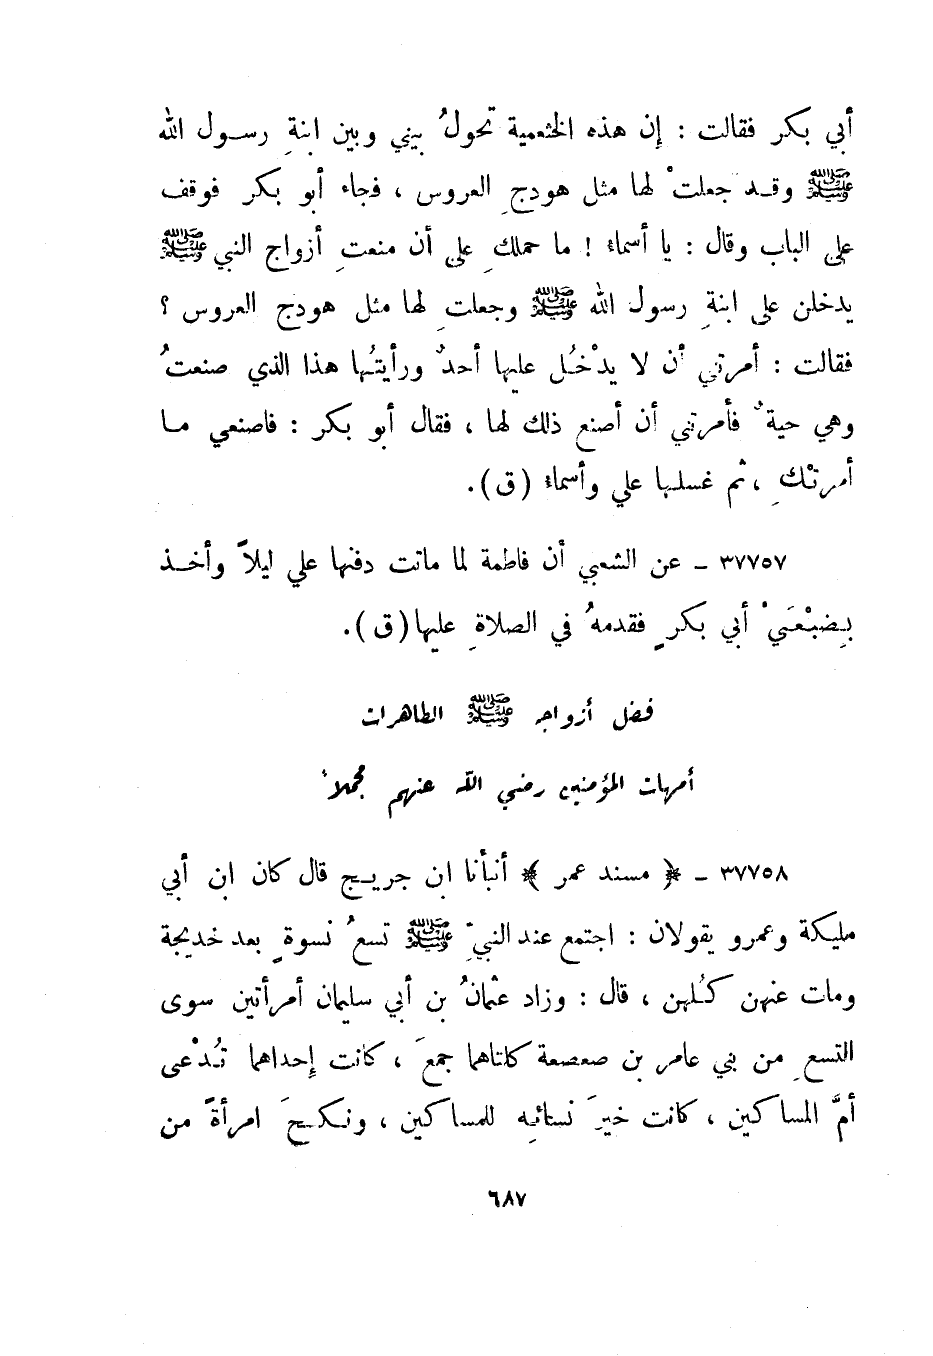 أبي بكر فقالت : إن هذه الخثعمية تحولُ بيني وبين ابنةِ رسول الله
ﷺ وقد جعلتْ لها مثل هودجِ العروس ، فجاء أبو بكر فوقف
على الباب وقال : يا أسماء ! ما حملكِ على أن منعتِ أزواج النبي ﷺ
يدخلن على ابنةِ رسول الله ﷺ وجعلتِ لها مثل هودج العروس ؟
فقالت : أمرتني أن لا يدْخُل عليها أحدٌ ورأيتُها هذا الذي صنعتُ
وهي حيةٌ فأمرتني أن أصنع ذلك لها ، فقال أبو بكر : فاصنعي ما
أمرتْكِ ، ثم غسلها علي وأسماء (ق).
٣٧٧٥٧ - عن الشعبي أن فاطمة لما ماتت دفنها علي ليلاً وأخذ
بِضبْعَيْ أبي بكرٍ فقدمهُ في الصلاةِ عليها (ق).
فضل أزواجه ﷺ الطاهرات
أمهات المؤمنين رضي الله عنهم مجملاً
٣٧٧٥٨ - ﴿ مسند عمر ﴾ أنبأنا ابن جريج قال كان ابن أبي
مليكة وعمرو يقولان : اجتمع عند النبيِّ ﷺ تسعُ نسوةٍ بعد خديجة
ومات عنهن كُلهن ، قال : وزاد عثمانُ بن أبي سليمان أمرأتين سوى
التسعِ من بني عامر بن صعصعة كلتاهما جمعَ ، كانت إحداهما تُدْعى
أمَّ المساكين ، كانت خيرَ نسائه للمساكين ، ونكحَ امرأةً من
٦٨٧